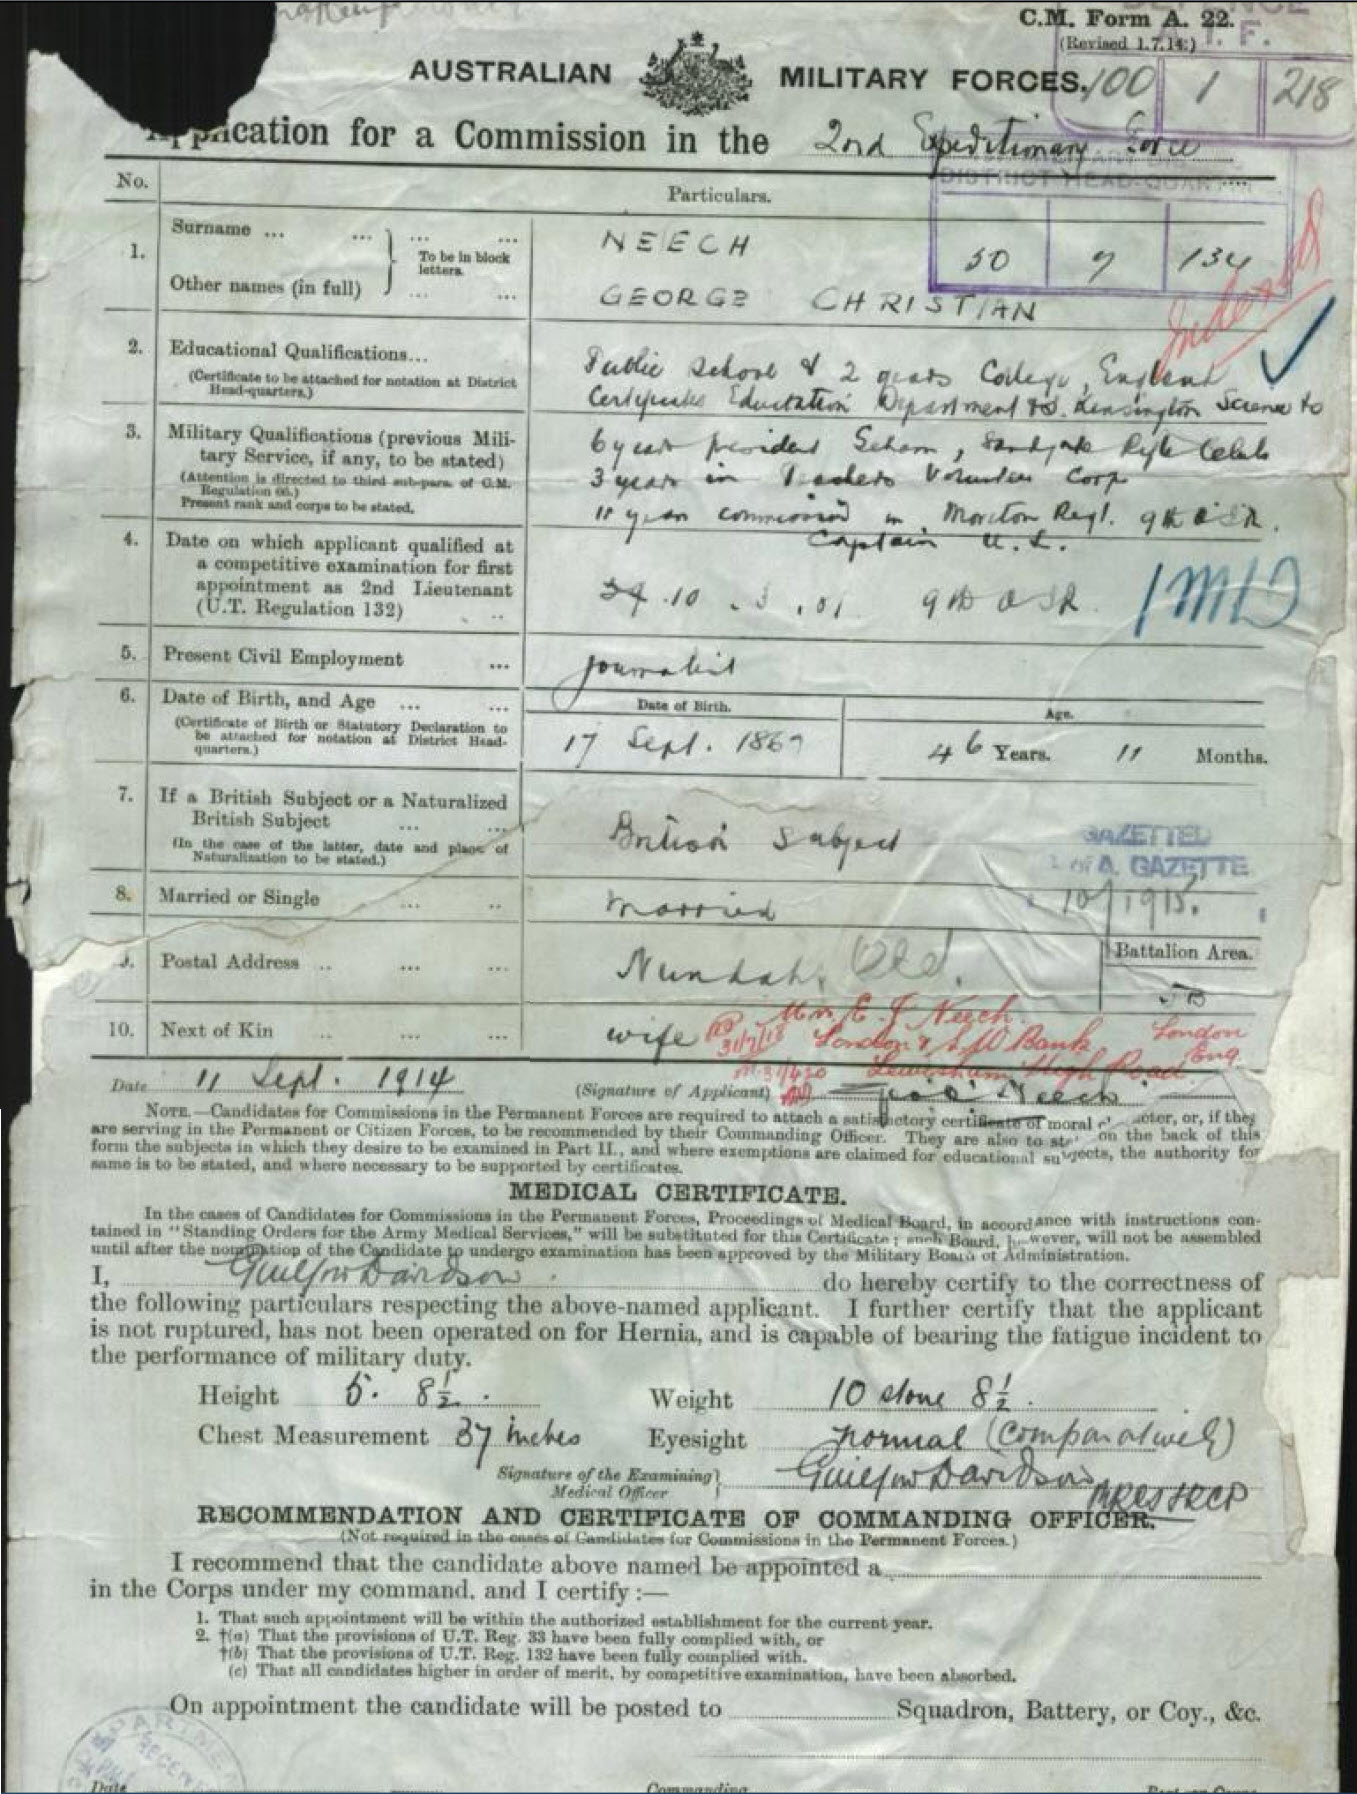 C.M. Form A. 22.
(Revised 1.7.14.) I. F.
AUSTRALIAN MILITARY FORCES.
100 1 218
Application for a Commission in the 2nd Expeditionary Force
DISTRICT HEAD-QUARTERS
No. Particulars.
50 7 134
Indexed
1. Surname ... ... ... ... NEECH
To be in block letters.
Other names (in full) ... ... GEORGE CHRISTIAN
2. Educational Qualifications... Public School & 2 years College, England
(Certificate to be attached for notation at District Head-quarters.) Certificates Education Department & S. Kensington Science &c
3. Military Qualifications (previous Military Service, if any, to be stated) 6 years president Rifle Club
(Attention is directed to third sub-para. of C.M. Regulation 66.) 3 years in Teachers Volunteer Corp
Present rank and corps to be stated. 11 years commissioned in Moreton Regt. 9th
Captain U.L.
4. Date on which applicant qualified at a competitive examination for first appointment as 2nd Lieutenant (U.T. Regulation 132) .. 10 . 3 . 01 9th
1MD
5. Present Civil Employment ... journalist
6. Date of Birth, and Age ... ... Date of Birth. Age.
(Certificate of Birth or Statutory Declaration to be attached for notation at District Head-quarters.) 17 Sept. 1867 46 Years. 11 Months.
7. If a British Subject or a Naturalized British Subject ... ... British Subject
(In the case of the latter, date and place of Naturalization to be stated.)
GAZETTED
of A. GAZETTE
10/1915.
8. Married or Single ... .. Married
9. Postal Address .. ... ... Nundah, Qld.
Battalion Area.
10. Next of Kin .. ... ... wife Mrs. E. J. Neech.
London & S. W Bank London
Lewisham High Road Eng.
Date 11 Sept. 1914 (Signature of Applicant) Neech
NOTE.—Candidates for Commissions in the Permanent Forces are required to attach a satisfactory certificate of moral cter, or, if they
are serving in the Permanent or Citizen Forces, to be recommended by their Commanding Officer. They are also to st on the back of this
form the subjects in which they desire to be examined in Part II., and where exemptions are claimed for educational subjects, the authority for
same is to be stated, and where necessary to be supported by certificates.
MEDICAL CERTIFICATE.
In the cases of Candidates for Commissions in the Permanent Forces, Proceedings of Medical Board, in accordance with instructions con-
tained in "Standing Orders for the Army Medical Services," will be substituted for this Certificate; such Board, however, will not be assembled
until after the nomination of the Candidate to undergo examination has been approved by the Military Board of Administration.
I, Guilfow Davidson do hereby certify to the correctness of
the following particulars respecting the above-named applicant. I further certify that the applicant
is not ruptured, has not been operated on for Hernia, and is capable of bearing the fatigue incident to
the performance of military duty.
Height 5. 8½. Weight 10 stone 8½.
Chest Measurement 37 inches Eyesight normal (comparatively)
Signature of the Examining Medical Officer Guilfow Davidson MRCS LRCP
RECOMMENDATION AND CERTIFICATE OF COMMANDING OFFICER.
(Not required in the cases of Candidates for Commissions in the Permanent Forces.)
I recommend that the candidate above named be appointed a
in the Corps under my command, and I certify :—
1. That such appointment will be within the authorized establishment for the current year.
2. †(a) That the provisions of U.T. Reg. 33 have been fully complied with, or
†(b) That the provisions of U.T. Reg. 132 have been fully complied with.
(c) That all candidates higher in order of merit, by competitive examination, have been absorbed.
On appointment the candidate will be posted to Squadron, Battery, or Coy., &c.
Date Commanding